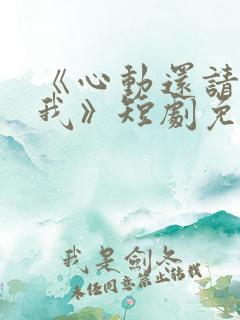 《心動還請
我》短劇免
我是劍冬
未经同意禁止转载